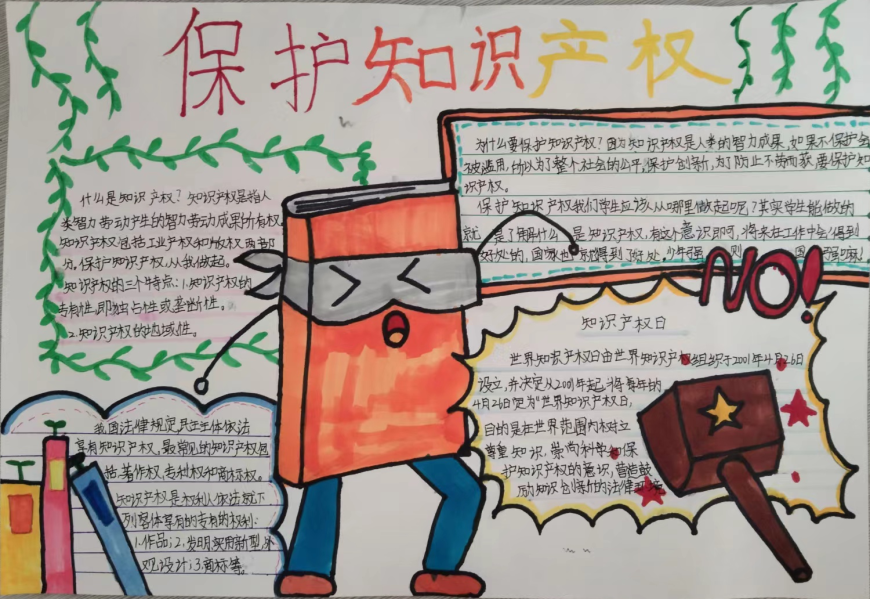 保护知识产权
什么是知识产权？知识产权是指人
类智力劳动产生的智力劳动成果所有权
知识产权包括工业产权和版权两部
分。保护知识产权，从我做起。
知识产权的三个特点：1.知识产权的
专有性，即独占性或垄断性。
2.知识产权的地域性。
为什么要保护知识产权？因为知识产权是人类的智力成果，如果不保护会
被滥用，所以为了整个社会的公平，保护创新，为了防止不劳而获，要保护知
识产权。
保护知识产权我们学生应该从哪里做起呢？其实学生能做的
就是了解什么是知识产权，有这个意识即可，将来在工作中会得到
好处的，国家也就得到了好处，少年强 则 国强嘛！
NO!
知识产权日
世界知识产权日由世界知识产权组织于2001年4月26日
设立，并决定从2001年起，将每年的
4月26日定为"世界知识产权日，
目的是在世界范围内树立
尊重知识，崇尚科学和保
护知识产权的意识，营造鼓
励知识创新的法律环境
我国法律规定民事主体依法
享有知识产权，最常见的知识产权包
括：著作权，专利权和商标权。
知识产权是权利人依法就下
列客体享有的专有的权利：
1.作品；2.发明，实用新型，外
观设计；3.商标等。